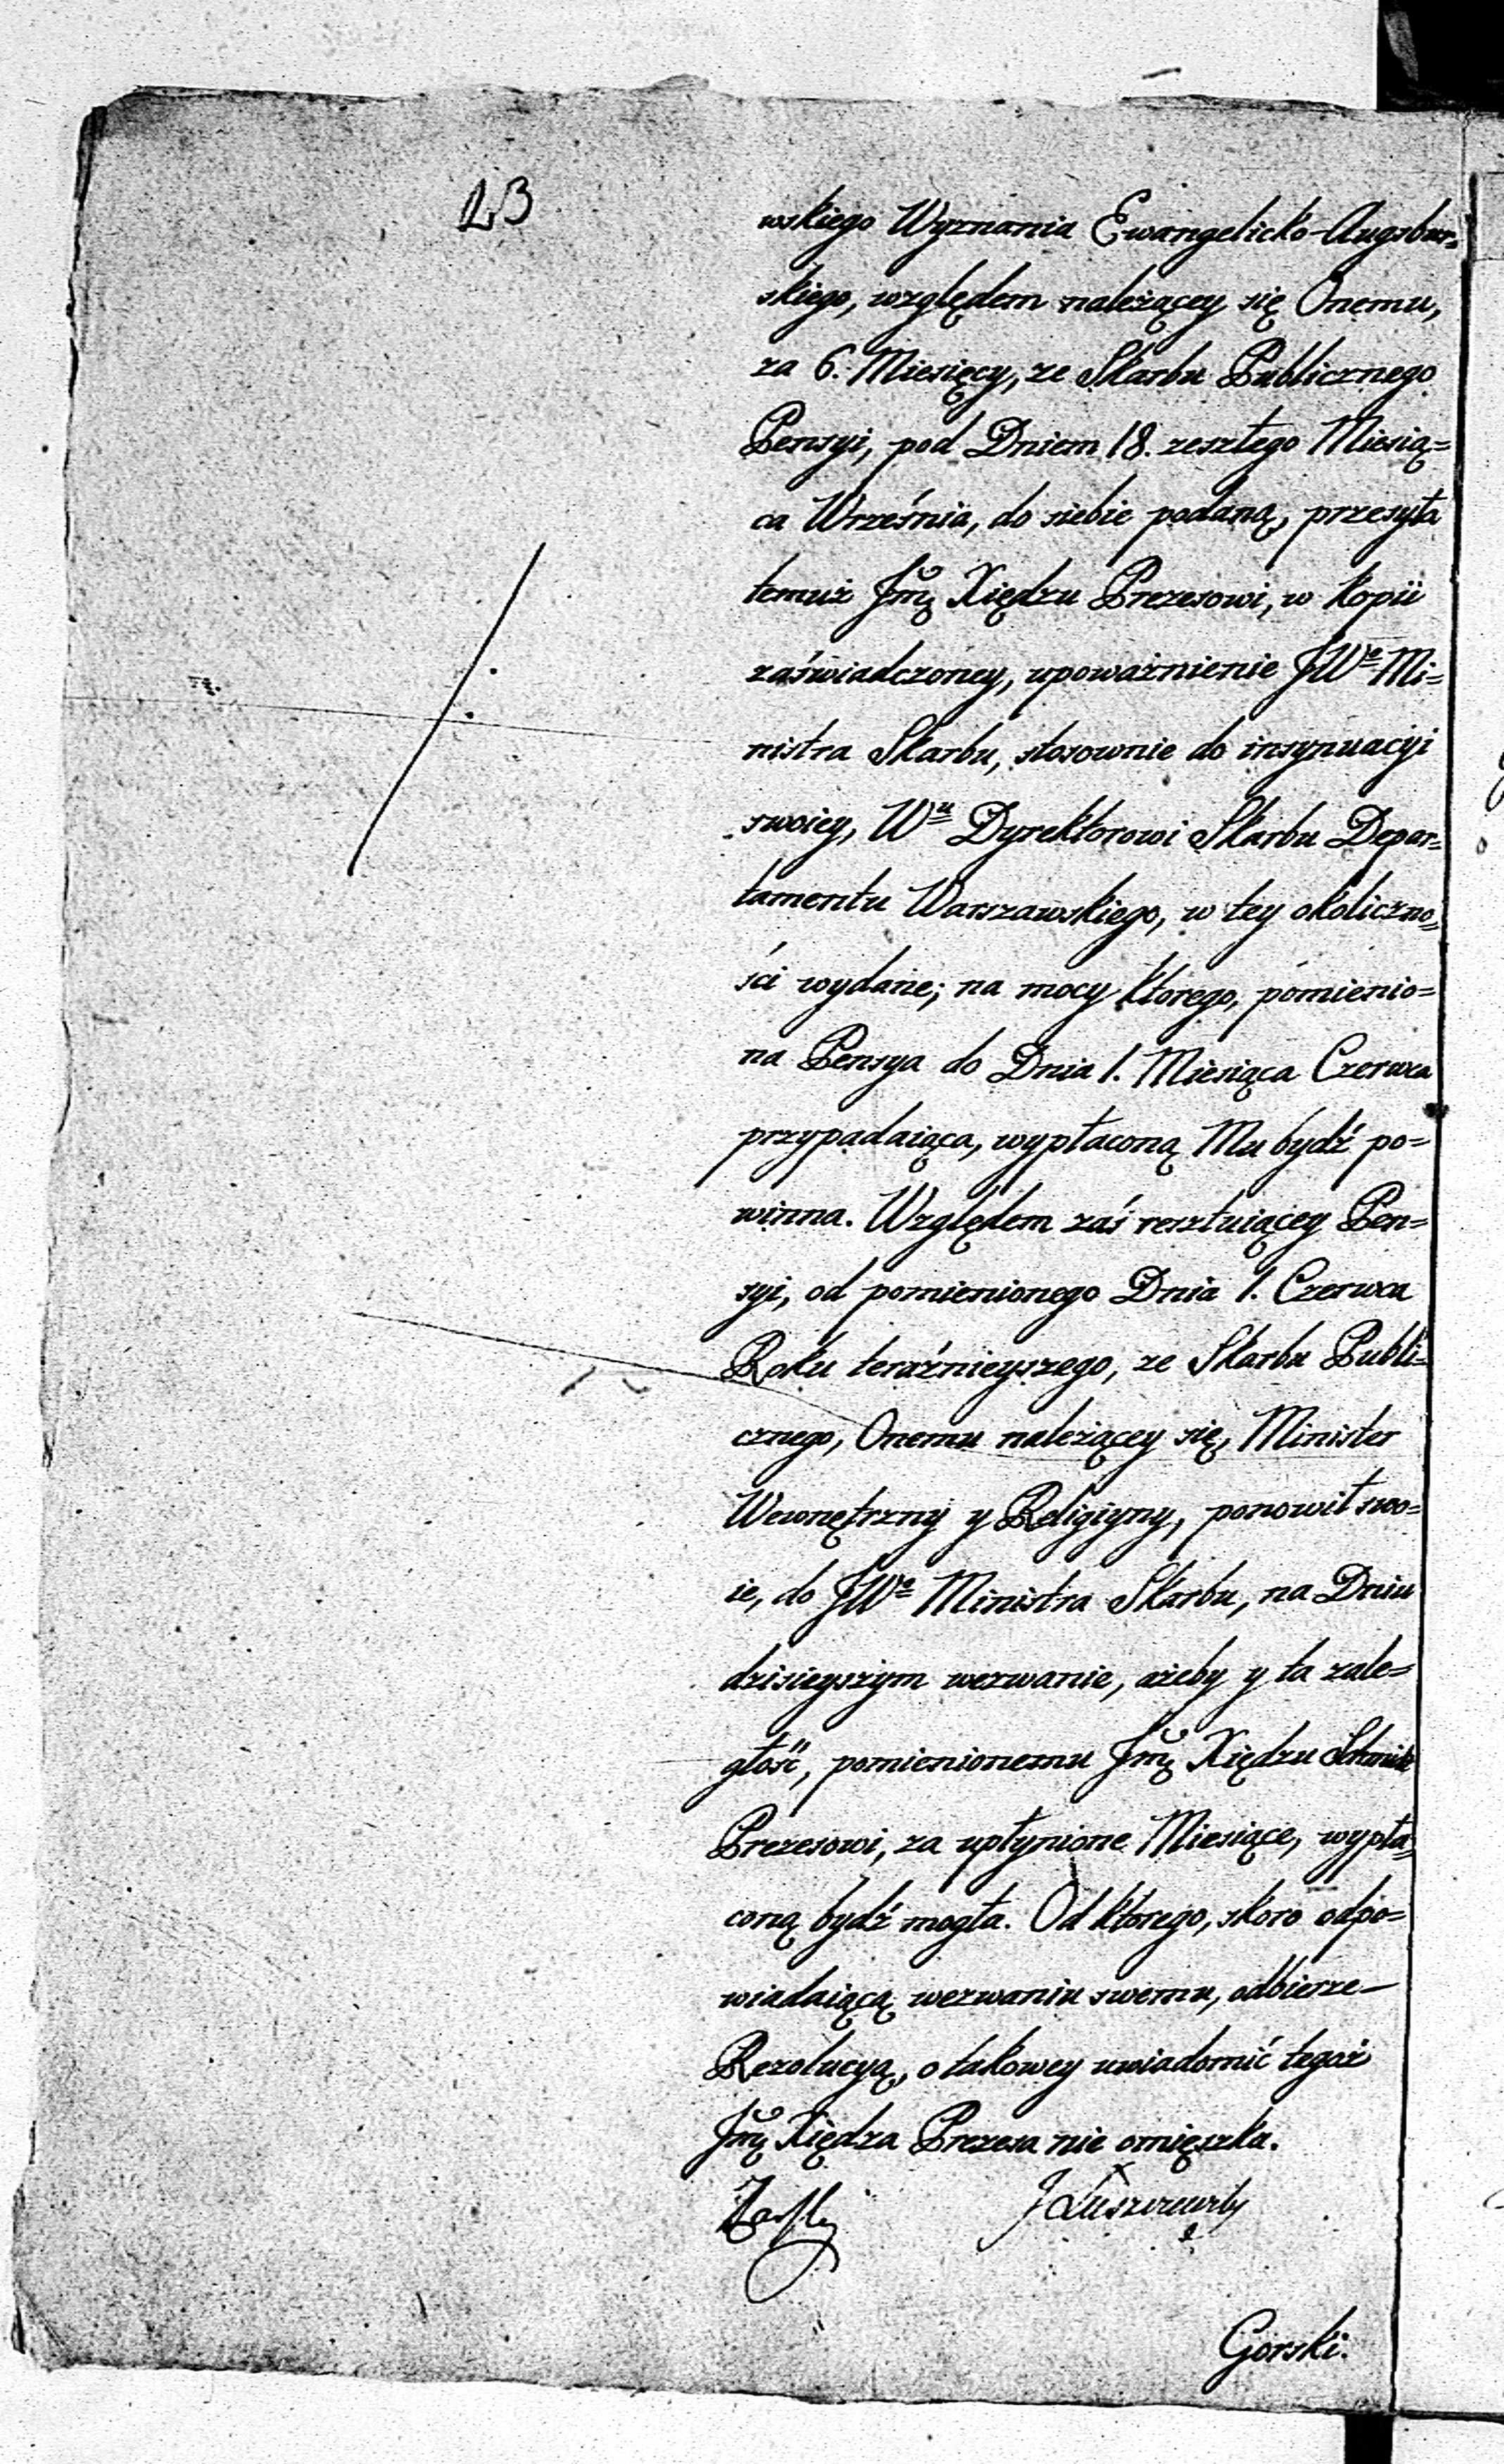 23
wskiego Wyznania Ewangelicko-Augsbur=
skiego, względem należącey się Onemu,
za 6. Miesięcy, ze Skarbu Publicznego
Pensyi, pod Dniem 18. zeszłego Miesią=
ca Września, do siebie podaną, przesyła
temuż Jmę Xiędzu Prezesowi, w kopii
zaświadczoney, upoważnienie JWo Mi=
nistra Skarbu, stosownie do insynuacyi
swoiey, Wu Dyrektorowi Skarbu Depar=
tamentu Warszawskiego, w tey okoliczno=
ści wydane; na mocy ktorego, pomienio=
na Pensya do Dnia 1. Miesiąca Czerwca
przypadaiąca, wypłaconą Mu bydź po=
winna. Względem zaś resztuiącey Pen=
syi, od pomienionego Dnia 1. Czerwca
Roku teraźnieyszego, ze Skarbu Publi=
cznego, Onemu należącey się, Minister
Wewnętrzny y Religiyny, ponowił swo=
ie, do JWo Ministra Skarbu, na Dniu
dzisieyszym wezwanie, ażeby y ta zale=
głość, pomienionemu Jmę Xiędzu Schmidt
Prezesowi, za upłynione Miesiące, wypła=
coną bydź mogła. Od ktorego, skoro odpo=
wiadaiącą wezwaniu swemu, odbierze
Rezolucyą, o takowey uwiadomić tegoż
Jmę Xiędza Prezesa nie omięszka.
J Łuszczewsky
Gorski.